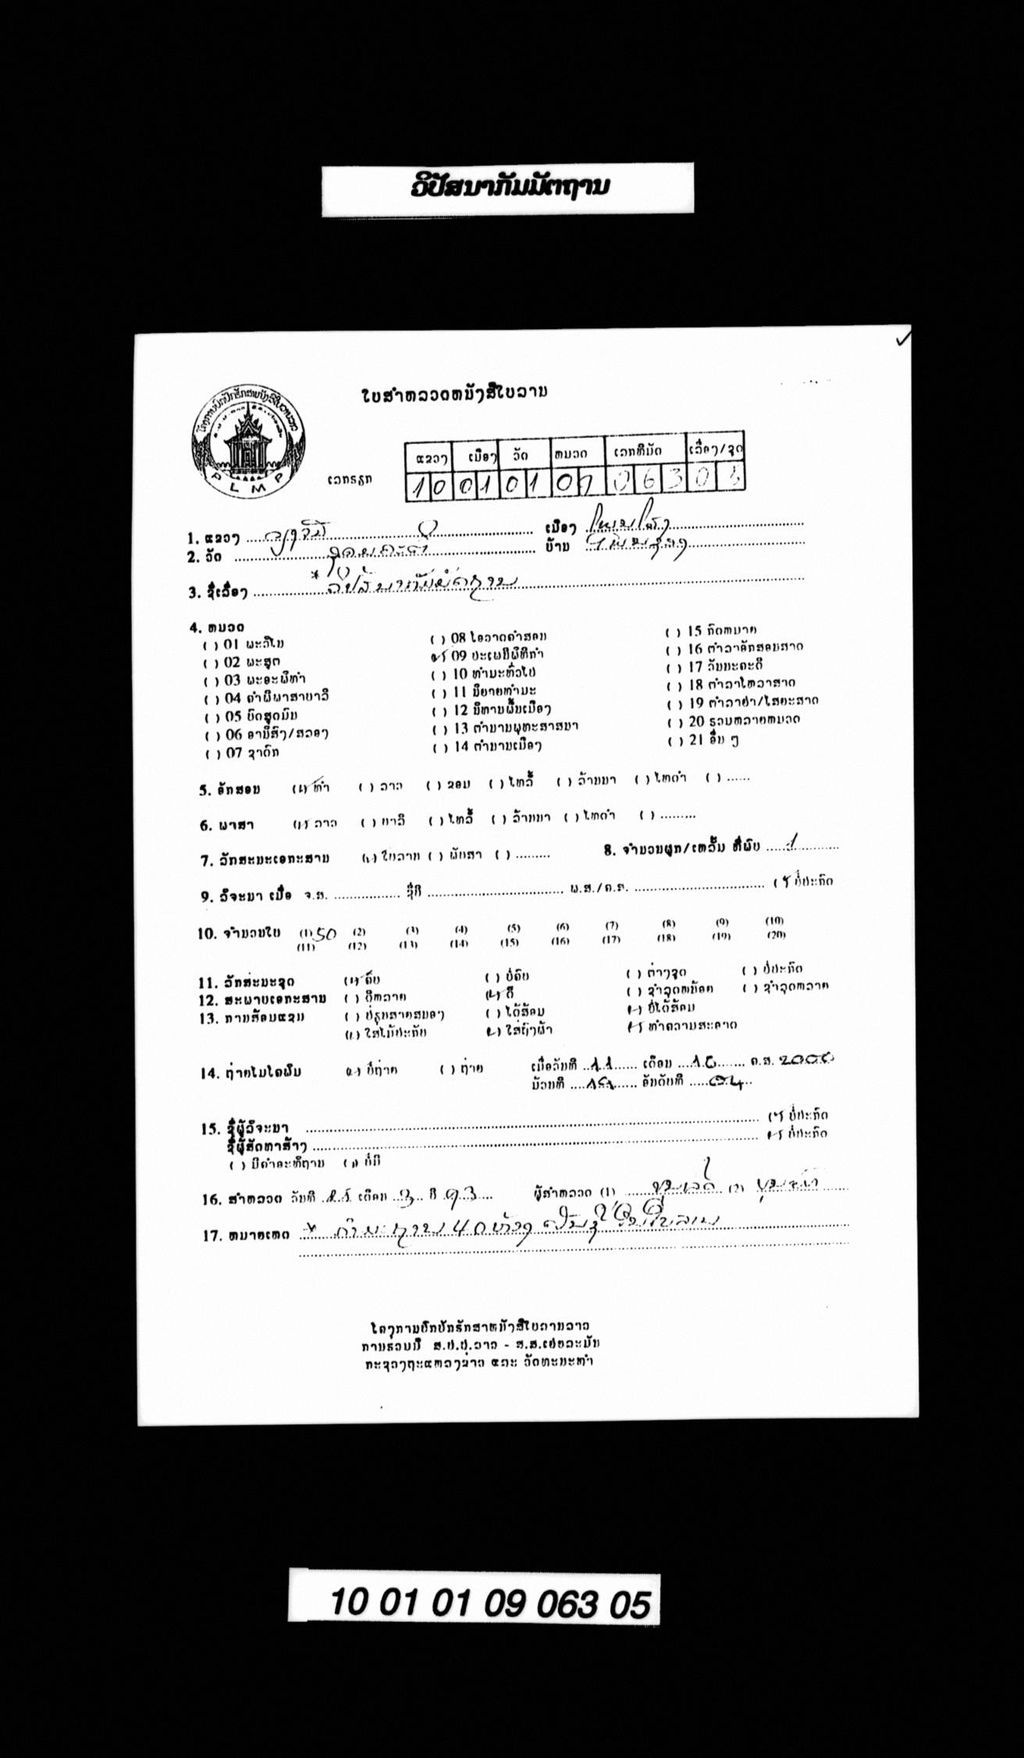 ວິປັສນາກັມມັຕຖານ
ໃບສຳຫລວດຫນັງສືໃບລານ
PLMP
ແຂວງ ເມືອງ ວັດ ຫມວດ ເລກທີມັດ ເລື່ອງ/ຊຸດ
ເລກຣຫັກ 10 01 01 09 063 05
1. ແຂວງ ເມືອງ
2. ວັດ ບ້ານ
3. ຊື່ເລື່ອງ
4. ຫມວດ
( ) 01 ພະວິໄນ ( ) 08 ໂອວາດຄຳສອນ ( ) 15 ກົດຫມາຍ
( ) 02 ພະສູດ 09 ປະເພນີພິທີກຳ ( ) 16 ຕຳລາອັກສອນສາດ
( ) 03 ພະອະພິທຳ ( ) 10 ທຳມະທົ່ວໄປ ( ) 17 ວັນນະຄະດີ
( ) 04 ຄຳພີພາສາບາລີ ( ) 11 ນິຍາຍທຳມະ ( ) 18 ຕຳລາໂຫລາສາດ
( ) 05 ບົດສູດມົນ ( ) 12 ນິທານພື້ນເມືອງ ( ) 19 ຕຳລາຢາ/ໄສຍະສາດ
( ) 06 ອານິສົງ/ສລອງ ( ) 13 ຕຳນານພຸທະສາສນາ ( ) 20 ຣວມຫລາຍຫມວດ
( ) 07 ຊາດົກ ( ) 14 ຕຳນານເມືອງ ( ) 21 ອື່ນ ໆ
5. ອັກສອນ ທຳ ( ) ລາວ ( ) ຂອມ ( ) ໄທລື້ ( ) ລ້ານນາ ( ) ໄທດຳ ( ) ......
6. ພາສາ ລາວ ( ) ບາລີ ( ) ໄທລື້ ( ) ລ້ານນາ ( ) ໄທດຳ ( ) .........
7. ລັກສະນະເອກະສານ ໃບລານ ( ) ພັບສາ ( ) ......... 8. ຈຳນວນຜູກ/ເຫລັ້ມ ທີ່ພົບ 1
9. ລິຈະນາ ເມື່ອ ຈ.ສ. ຊື່ປີ ພ.ສ./ຄ.ສ. ບໍ່ປະກົດ
10. ຈຳນວນໃບ (1) 50 (2) (3) (4) (5) (6) (7) (8) (9) (10)
(11) (12) (13) (14) (15) (16) (17) (18) (19) (20)
11. ລັກສະນະຊຸດ ຄົບ ( ) ບໍ່ຄົບ ( ) ຕ່າງຊຸດ ( ) ບໍ່ປະກົດ
12. ສະພາບເອກະສານ ( ) ດີຫລາຍ ດີ ( ) ຊຳລຸດຫນ້ອຍ ( ) ຊຳລຸດຫລາຍ
13. ການສ້ອມແຊມ ( ) ປ່ຽນສາຍສນອງ ( ) ໄດ້ສ້ອມ ບໍ່ໄດ້ສ້ອມ
ໃສ່ໄມ້ປະກັບ ໃສ່ຖົງຜ້າ ທຳຄວາມສະອາດ
14. ຖ່າຍໄມໂຄຟິມ ບໍ່ຖ່າຍ ( ) ຖ່າຍ ເມື່ອວັນທີ 11 ເດືອນ 10 ຄ.ສ. 2000
ມ້ວນທີ ອັນດັບທີ 04
15. ຊື່ຜູ້ລິຈະນາ ບໍ່ປະກົດ
ຊື່ຜູ້ສັດທາສ້າງ ບໍ່ປະກົດ
( ) ມີຄຳອະທິຖານ ບໍ່ມີ
16. ສຳຫລວດ ວັນທີ ເດືອນ 3 ປີ 93 ຜູ້ສຳຫລວດ (1) (2)
17. ຫມາຍເຫດ
ໂຄງການປົກປັກຮັກສາຫນັງສືໃບລານລາວ
ການຮວມມື ສ.ປ.ປ.ລາວ - ສ.ສ.ເຢຍລະມັນ
ກະຊວງຖະແຫລງຂ່າວ ແລະ ວັດທະນະທຳ
10 01 01 09 063 05